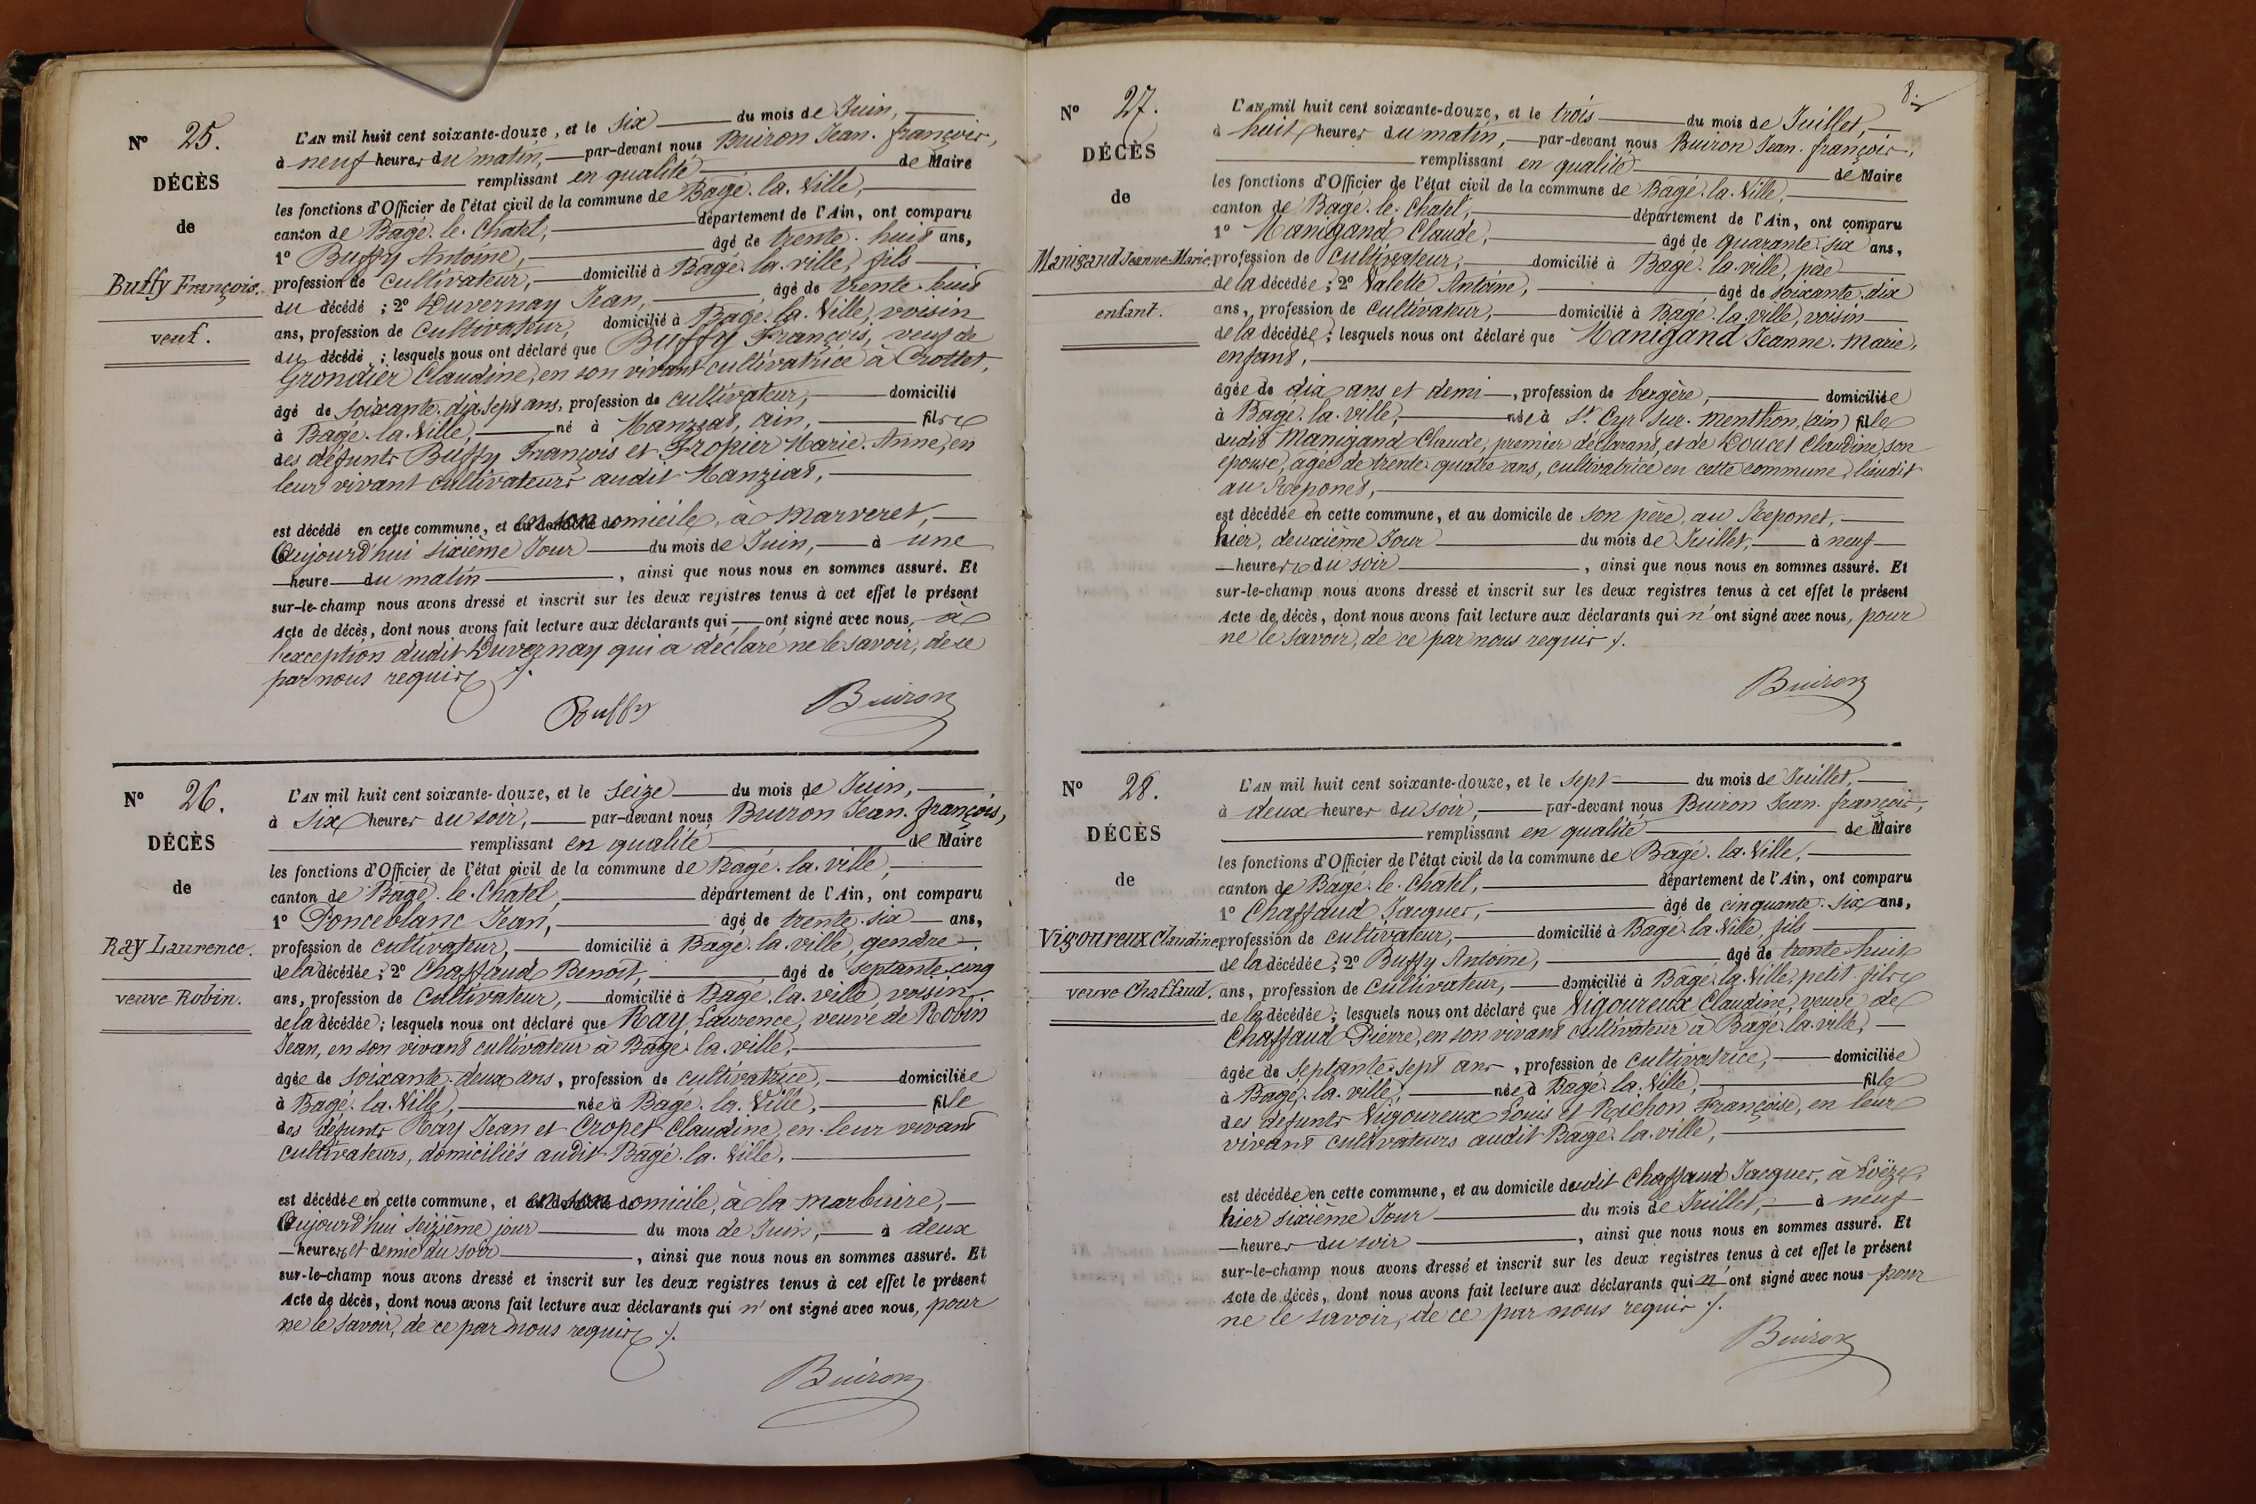 N° 25.
DÉCÈS
de
Buffy François.
veuf.
L'AN mil huit cent soixante-douze, et le six du mois de Juin,
à neuf heures du matin, par-devant nous Buiron Jean-françois,
remplissant en qualité de Maire
les fonctions d'Officier de l'état civil de la commune de Bâgé-la-Ville,
canton de Bâgé-le-Chatel, département de l'Ain, ont comparu
1° Buffy Antoine, âgé de trente-huit ans,
profession de cultivateur, domicilié à Bâgé-la-ville, fils
du décédé ; 2° Duvernay Jean, âgé de trente-huit
ans, profession de cultivateur, domicilié à Bâgé-la-Ville, voisin
du décédé ; lesquels nous ont déclaré que Buffy François, veuf de
Grondier Claudine, en son vivant cultivatrice à Crottet,
âgé de soixante-dix-sept ans, profession de cultivateur, domicilié
à Bâgé-la-Ville, né à Manziat, ain, fils
des défunts Buffy François et Fropier Marie-Anne, en
leur vivant cultivateurs audit Manziat,
est décédé en cette commune, et en son domicile, à Marveret,
Aujourd'hui sixième Jour du mois de Juin, à une
heure du matin, ainsi que nous nous en sommes assuré. Et
sur-le-champ nous avons dressé et inscrit sur les deux registres tenus à cet effet le présent
Acte de décès, dont nous avons fait lecture aux déclarants qui ont signé avec nous, à
l'exception dudit Duvernay qui a déclaré ne le savoir, de ce
par nous requis ./.
Buffy Buiron
N° 26.
DÉCÈS
de
Ray Laurence.
veuve Robin.
L'AN mil huit cent soixante-douze, et le seize du mois de Juin,
à six heures du soir, par-devant nous Buiron Jean-françois,
remplissant en qualité de Maire
les fonctions d'Officier de l'état civil de la commune de Bâgé-la-ville,
canton de Bâgé-le-Chatel, département de l'Ain, ont comparu
1° Ponceblanc Jean, âgé de trente-six ans,
profession de cultivateur, domicilié à Bâgé-la-ville, gendre
de la décédée ; 2° Chaffaud Benoît, âgé de septante-cinq
ans, profession de cultivateur, domicilié à Bâgé-la-ville, voisin
de la décédée ; lesquels nous ont déclaré que Ray Laurence, veuve de Robin
Jean, en son vivant cultivateur à Bâgé-la-ville,
âgée de soixante-deux ans, profession de cultivatrice, domiciliée
à Bâgé-la-Ville, née à Bâgé-la-Ville, fille
des défunts Ray Jean et Cropet Claudine, en leur vivant
cultivateurs, domiciliés audit Bâgé-la-Ville,
est décédée en cette commune, et en son domicile, à la marbuire,
Aujourd'hui seizième jour du mois de Juin, à deux
heures et demie du soir, ainsi que nous nous en sommes assuré. Et
sur-le-champ nous avons dressé et inscrit sur les deux registres tenus à cet effet le présent
Acte de décès, dont nous avons fait lecture aux déclarants qui n'ont signé avec nous, pour
ne le savoir, de ce par nous requis ./.
Buiron
8.
N° 27.
DÉCÈS
de
Manigand Jeanne-Marie,
enfant.
L'AN mil huit cent soixante-douze, et le trois du mois de Juillet,
à huit heures du matin, par-devant nous Buiron Jean-françois,
remplissant en qualité de Maire
les fonctions d'Officier de l'état civil de la commune de Bâgé-la-Ville,
canton de Bâgé-le-Chatel, département de l'Ain, ont comparu
1° Manigand Claude, âgé de quarante-six ans,
profession de cultivateur, domicilié à Bâgé-la-ville, père
de la décédée ; 2° Valette Antoine, âgé de soixante-dix
ans, profession de cultivateur, domicilié à Bâgé-la-ville, voisin
de la décédée ; lesquels nous ont déclaré que Manigand Jeanne-Marie,
enfant,
âgée de dix ans et demi, profession de bergère, domiciliée
à Bâgé-la-ville, née à St Cyr-sur-Menthon, (ain) fille
dudit Manigand Claude, premier déclarant, et de Doucet Claudine, son
épouse, âgée de trente-quatre ans, cultivatrice en cette commune, lieudit
au Reponet,
est décédée en cette commune, et au domicile de son père, au Reponet,
hier, deuxième Jour du mois de Juillet, à neuf
heures du soir, ainsi que nous nous en sommes assuré. Et
sur-le-champ nous avons dressé et inscrit sur les deux registres tenus à cet effet le présent
Acte de décès, dont nous avons fait lecture aux déclarants qui n'ont signé avec nous, pour
ne le savoir, de ce par nous requis ./.
Buiron
N° 28.
DÉCÈS
de
Vigoureux Claudine,
veuve Chaffaud.
L'AN mil huit cent soixante-douze, et le sept du mois de Juillet,
à deux heures du soir, par-devant nous Buiron Jean-françois,
remplissant en qualité de Maire
les fonctions d'Officier de l'état civil de la commune de Bâgé-la-Ville,
canton de Bâgé-le-Chatel, département de l'Ain, ont comparu
1° Chaffaud Jacques, âgé de cinquante-six ans,
profession de cultivateur, domicilié à Bâgé-la-Ville, fils
de la décédée ; 2° Buffy Antoine, âgé de trente-huit
ans, profession de cultivateur, domicilié à Bâgé-la-Ville, petit-fils
de la décédée ; lesquels nous ont déclaré que Vigoureux Claudine, veuve de
Chaffaud Pierre, en son vivant cultivateur à Bâgé-la-ville,
âgée de septante-sept ans, profession de cultivatrice, domiciliée
à Bâgé-la-ville, née à Bâgé-la-Ville, fille
des défunts Vigoureux Louis et Richon Françoise, en leur
vivant cultivateurs audit Bâgé-la-ville,
est décédée en cette commune, et au domicile dudit Chaffaud Jacques, à Loëze,
hier sixième Jour du mois de Juillet, à neuf
heures du soir, ainsi que nous nous en sommes assuré. Et
sur-le-champ nous avons dressé et inscrit sur les deux registres tenus à cet effet le présent
Acte de décès, dont nous avons fait lecture aux déclarants qui n'ont signé avec nous pour
ne le savoir, de ce par nous requis ./.
Buiron